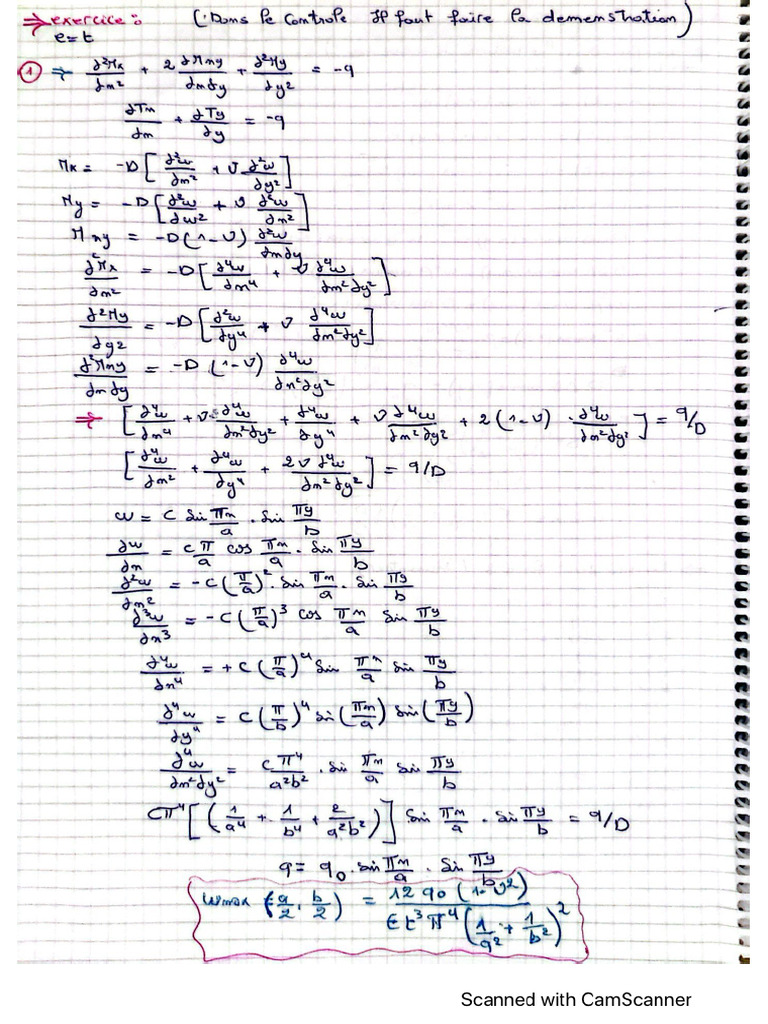 ⇒ exercice : (: Dans le controle Il faut faire la demenstration)
e=t
① ⇒ ∂²Mx/∂x² + 2 ∂Mxy/∂x∂y + ∂²My/∂y² = -q
∂Tx/∂x + ∂Ty/∂y = -q
Mx = -D[∂²w/∂x² + ν ∂²w/∂y²]
My = -D[∂²w/∂w² + ν ∂²w/∂x²]
Mxy = -D(1-ν) ∂²w/∂x∂y
∂²Mx/∂x² = -D[∂⁴w/∂x⁴ + ν ∂⁴w/∂x²∂y²]
∂²My/∂y² = -D[∂²w/∂y⁴ + ν ∂⁴w/∂x²∂y²]
∂²Mxy/∂x∂y = -D(1-ν) ∂⁴w/∂x²∂y²
⇒ [∂⁴w/∂x⁴ + ν. ∂⁴w/∂x²∂y² + ∂⁴w/∂y⁴ + ν ∂⁴w/∂x²∂y² + 2(1-ν) . ∂⁴w/∂x²∂y²] = q/D
[∂⁴w/∂x² + ∂⁴w/∂y⁴ + 2ν ∂⁴w/∂x²∂y²] = q/D
w = C sin πx/a . sin πy/b
∂w/∂x = Cπ/a cos πx/a . sin πy/b
∂²w/∂x² = -C(π/a)². sin πx/a . sin πy/b
∂³w/∂x³ = -C(π/a)³ cos πx/a sin πy/b
∂⁴w/∂x⁴ = +C(π/a)⁴ sin πx/a sin πy/b
∂⁴w/∂y⁴ = C(π/b)⁴ sin(πx/a) sin(πy/b)
∂⁴w/∂x²∂y² = Cπ⁴/a²b² . sin πx/a sin πy/b
Cπ⁴[(1/a⁴ + 1/b⁴ + 2/a²b²)] sin πx/a . sin πy/b = q/D
q = q₀ . sin πx/a . sin πy/b
wmax (a/2, b/2) = 12 q₀ (1-ν²)/Et³π⁴(1/a² + 1/b²)²
Scanned with CamScanner